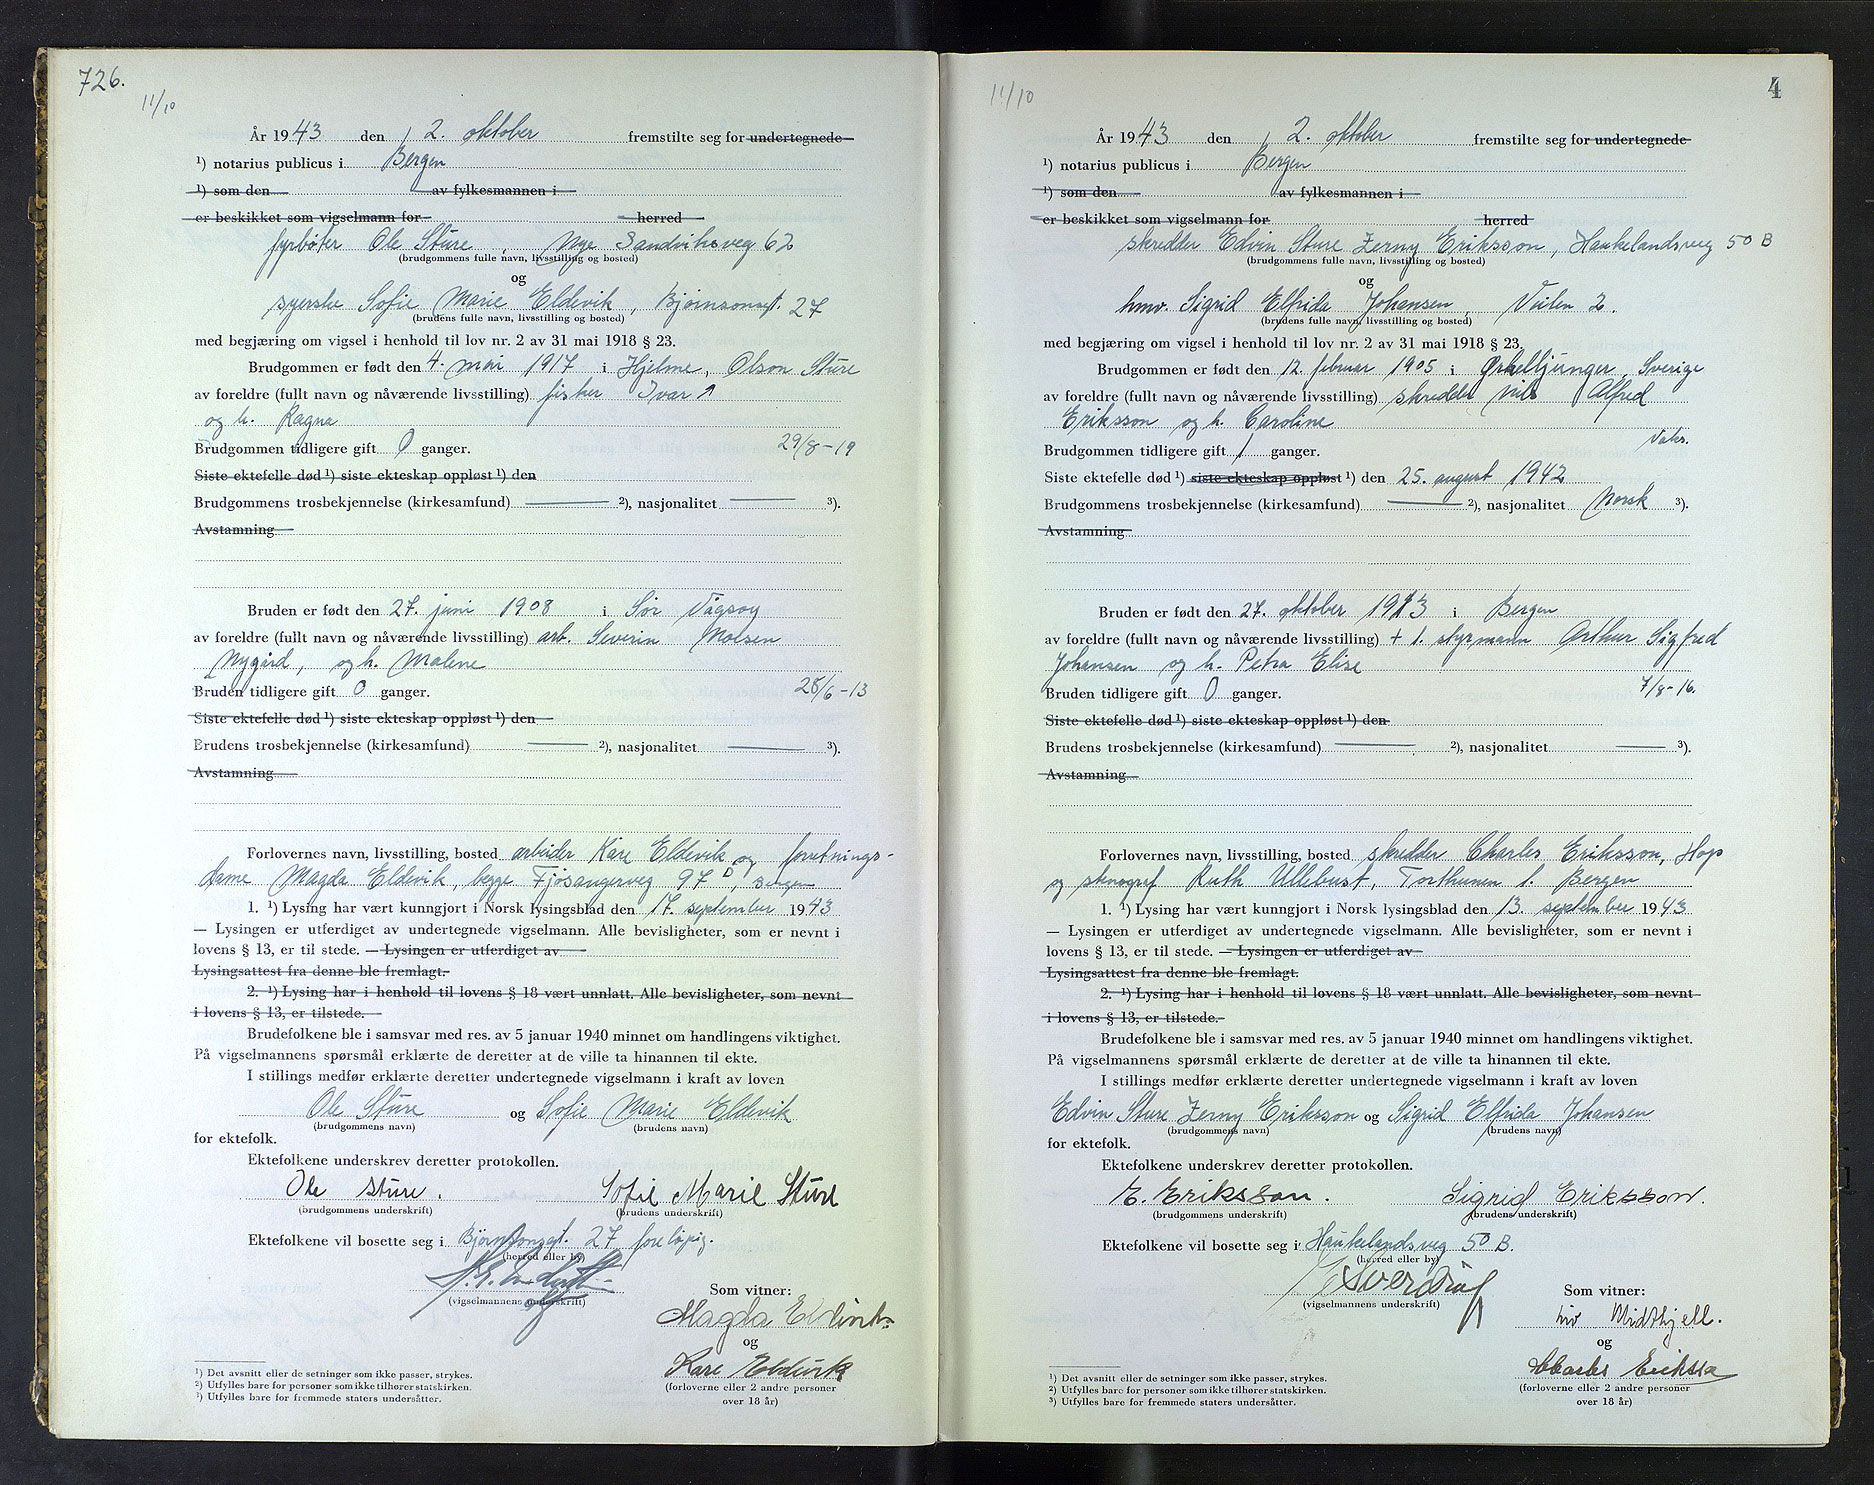 726.
11/10
År 1943 den 2. oktober fremstilte seg for undertegnede
¹) notarius publicus i Bergen
¹) som den av fylkesmannen i
er beskikket som vigselmann for herred
fyrbøter Ole Sture, Nye Sandviksveg 62
(brudgommens fulle navn, livsstilling og bosted)
og
syerske Sofie Marie Eldevik, Bjørnsonsgt. 27
(brudens fulle navn, livsstilling og bosted)
med begjæring om vigsel i henhold til lov nr. 2 av 31 mai 1918 § 23.
Brudgommen er født den 4. mai 1917 i Hjelme, Olson Sture
av foreldre (fullt navn og nåværende livsstilling) fisker Ivar
og h. Ragna
Brudgommen tidligere gift 0 ganger. 29/8-19
Siste ektefelle død ¹) siste ekteskap oppløst ¹) den
Brudgommens trosbekjennelse (kirkesamfund) ²), nasjonalitet ³).
Avstamning
Bruden er født den 27. juni 1908 i Sør Vågsøy
av foreldre (fullt navn og nåværende livsstilling) arb. Severin Molsen
Nygård, og h. Malene
Bruden tidligere gift 0 ganger. 28/6-13
Siste ektefelle død ¹) siste ekteskap oppløst ¹) den
Brudens trosbekjennelse (kirkesamfund) ²), nasjonalitet ³).
Avstamning
Forlovernes navn, livsstilling, bosted arbeider Kåre Eldevik og forretnings-
dame Magda Eldevik, begge Fjøsangerveg 97 D, Bergen
1. ¹) Lysing har vært kunngjort i Norsk lysingsblad den 17. september 1943
— Lysingen er utferdiget av undertegnede vigselmann. Alle bevisligheter, som er nevnt i
lovens § 13, er til stede. — Lysingen er utferdiget av
Lysingsattest fra denne ble fremlagt.
2. ¹) Lysing har i henhold til lovens § 18 vært unnlatt. Alle bevisligheter, som nevnt
i lovens § 13, er tilstede.
Brudefolkene ble i samsvar med res. av 5 januar 1940 minnet om handlingens viktighet.
På vigselmannens spørsmål erklærte de deretter at de ville ta hinannen til ekte.
I stillings medfør erklærte deretter undertegnede vigselmann i kraft av loven
Ole Sture og Sofie Marie Eldevik
(brudgommens navn) (brudens navn)
for ektefolk.
Ektefolkene underskrev deretter protokollen.
Ole Sture. Sofie Marie Sture
(brudgommens underskrift) (brudens underskrift)
Ektefolkene vil bosette seg i Bjørnsonsgt. 27 foreløpig.
(herred eller by)
(vigselmannens underskrift)
Som vitner:
Magda Eldevik
og
Kåre Eldevik
(forloverne eller 2 andre personer
over 18 år)
¹) Det avsnitt eller de setninger som ikke passer, strykes.
²) Utfylles bare for personer som ikke tilhører statskirken.
³) Utfylles bare for fremmede staters undersåtter.
4
11/10
År 1943 den 2. oktober fremstilte seg for undertegnede
¹) notarius publicus i Bergen
¹) som den av fylkesmannen i
er beskikket som vigselmann for herred
skredder Edvin Sture Zerny Eriksson, Haukelandsveg 50 B
(brudgommens fulle navn, livsstilling og bosted)
og
hmv. Sigrid Elfrida Johansen, Veiten 2.
(brudens fulle navn, livsstilling og bosted)
med begjæring om vigsel i henhold til lov nr. 2 av 31 mai 1918 § 23.
Brudgommen er født den 12. februar 1905 i Ørkelljunger, Sverige
av foreldre (fullt navn og nåværende livsstilling) skredder Nils Alfred
Eriksson og h. Caroline
Brudgommen tidligere gift 1 ganger.
Siste ektefelle død ¹) siste ekteskap oppløst ¹) den 25. august 1942
Brudgommens trosbekjennelse (kirkesamfund) ²), nasjonalitet Norsk ³).
Avstamning
Bruden er født den 27. oktober 1913 i Bergen
av foreldre (fullt navn og nåværende livsstilling) + 1. styrmann Arthur Sigfred
Johansen og h. Petra Elise
Bruden tidligere gift 0 ganger. 7/8-16.
Siste ektefelle død ¹) siste ekteskap oppløst ¹) den
Brudens trosbekjennelse (kirkesamfund) ²), nasjonalitet ³).
Avstamning
Forlovernes navn, livsstilling, bosted skredder Charles Eriksson, Hop
og stenograf Ruth Ullebust, Bergen
1. ¹) Lysing har vært kunngjort i Norsk lysingsblad den 13. september 1943
— Lysingen er utferdiget av undertegnede vigselmann. Alle bevisligheter, som er nevnt i
lovens § 13, er til stede. — Lysingen er utferdiget av
Lysingsattest fra denne ble fremlagt.
2. ¹) Lysing har i henhold til lovens § 18 vært unnlatt. Alle bevisligheter, som nevnt
i lovens § 13, er tilstede.
Brudefolkene ble i samsvar med res. av 5 januar 1940 minnet om handlingens viktighet.
På vigselmannens spørsmål erklærte de deretter at de ville ta hinannen til ekte.
I stillings medfør erklærte deretter undertegnede vigselmann i kraft av loven
Edvin Sture Zerny Eriksson og Sigrid Elfrida Johansen
(brudgommens navn) (brudens navn)
for ektefolk.
Ektefolkene underskrev deretter protokollen.
E. Eriksson. Sigrid Eriksson.
(brudgommens underskrift) (brudens underskrift)
Ektefolkene vil bosette seg i Haukelandsveg 50 B.
(herred eller by)
Sverdrup
(vigselmannens underskrift)
Som vitner:
Liv Midthjell.
og
Charles Eriksson
(forloverne eller 2 andre personer
over 18 år)
¹) Det avsnitt eller de setninger som ikke passer, strykes.
²) Utfylles bare for personer som ikke tilhører statskirken.
³) Utfylles bare for fremmede staters undersåtter.